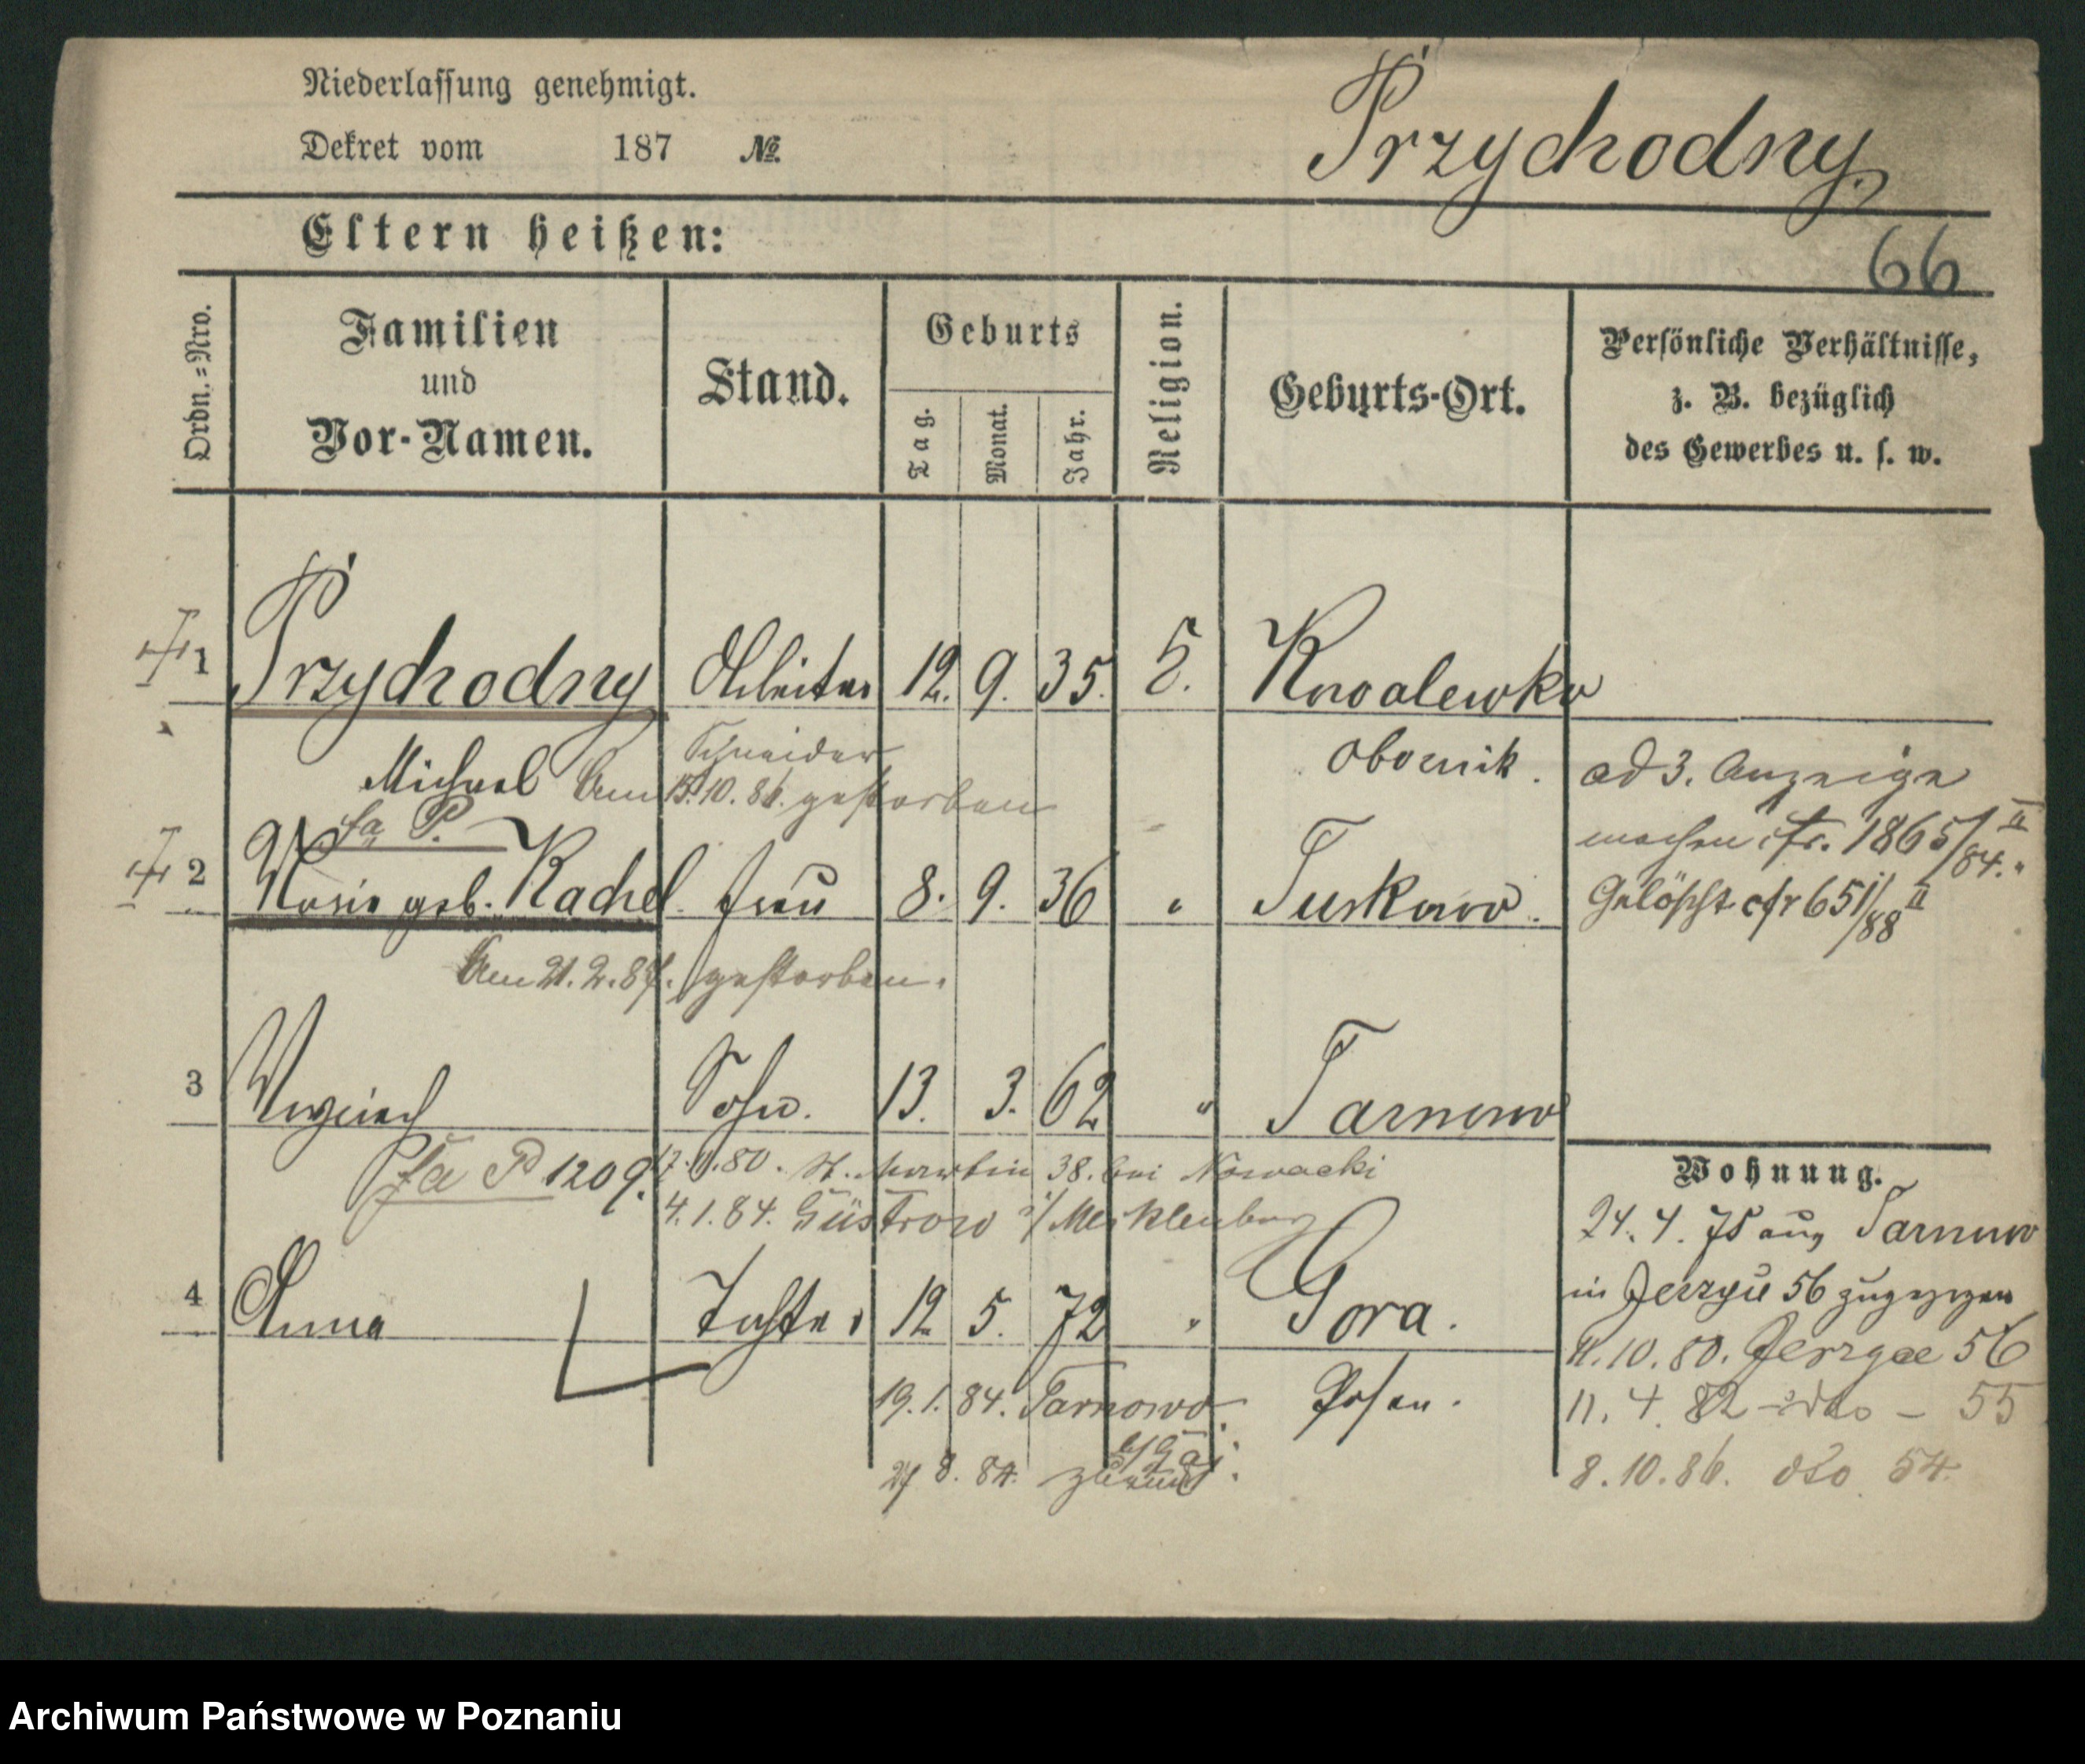 Niederlassung genehmigt.
Dekret vom 187 №
Przychodny.
Eltern heißen:
66
Ordn.-Nro.
Familien
und
Vor-Namen.
Stand.
Geburts
Tag.
Monat.
Jahr.
Religion.
Geburts-Ort.
Persönliche Verhältnisse,
z. B. bezüglich
des Gewerbes u. s. w.
1 Przychodny Arbeiter 12. 9. 35. Kowalewko
Schneider
Michael Am 15.10.86. gestorben
Obornik.
ad 3. Anzeige
machen cfr. 1865/84. II
fa P.
2 Marie geb. Rachel Frau 8. 9. 36 " Turkowo.
Gelöscht cfr 651/88 II
Am 21.2.87. gestorben.
3 Woyciech Sohn. 13. 3. 62 " Tarnowo
fa P 1209. 80. St. Martin 38. bei Nowacki
4.1.84. Güstrow i/Mecklenburg
Wohnung.
24. 4. 75 aus Tarnowo
in Jerzyce 56 zugezogen
4 Anna Tochter 12 5. 72 " Gora.
11.10.80. Jerzyce 56
19.1.84. Tarnowo Posen.
11. 4. 82 – dto – 55
27 8. 84.
8.10.86. dto 54.